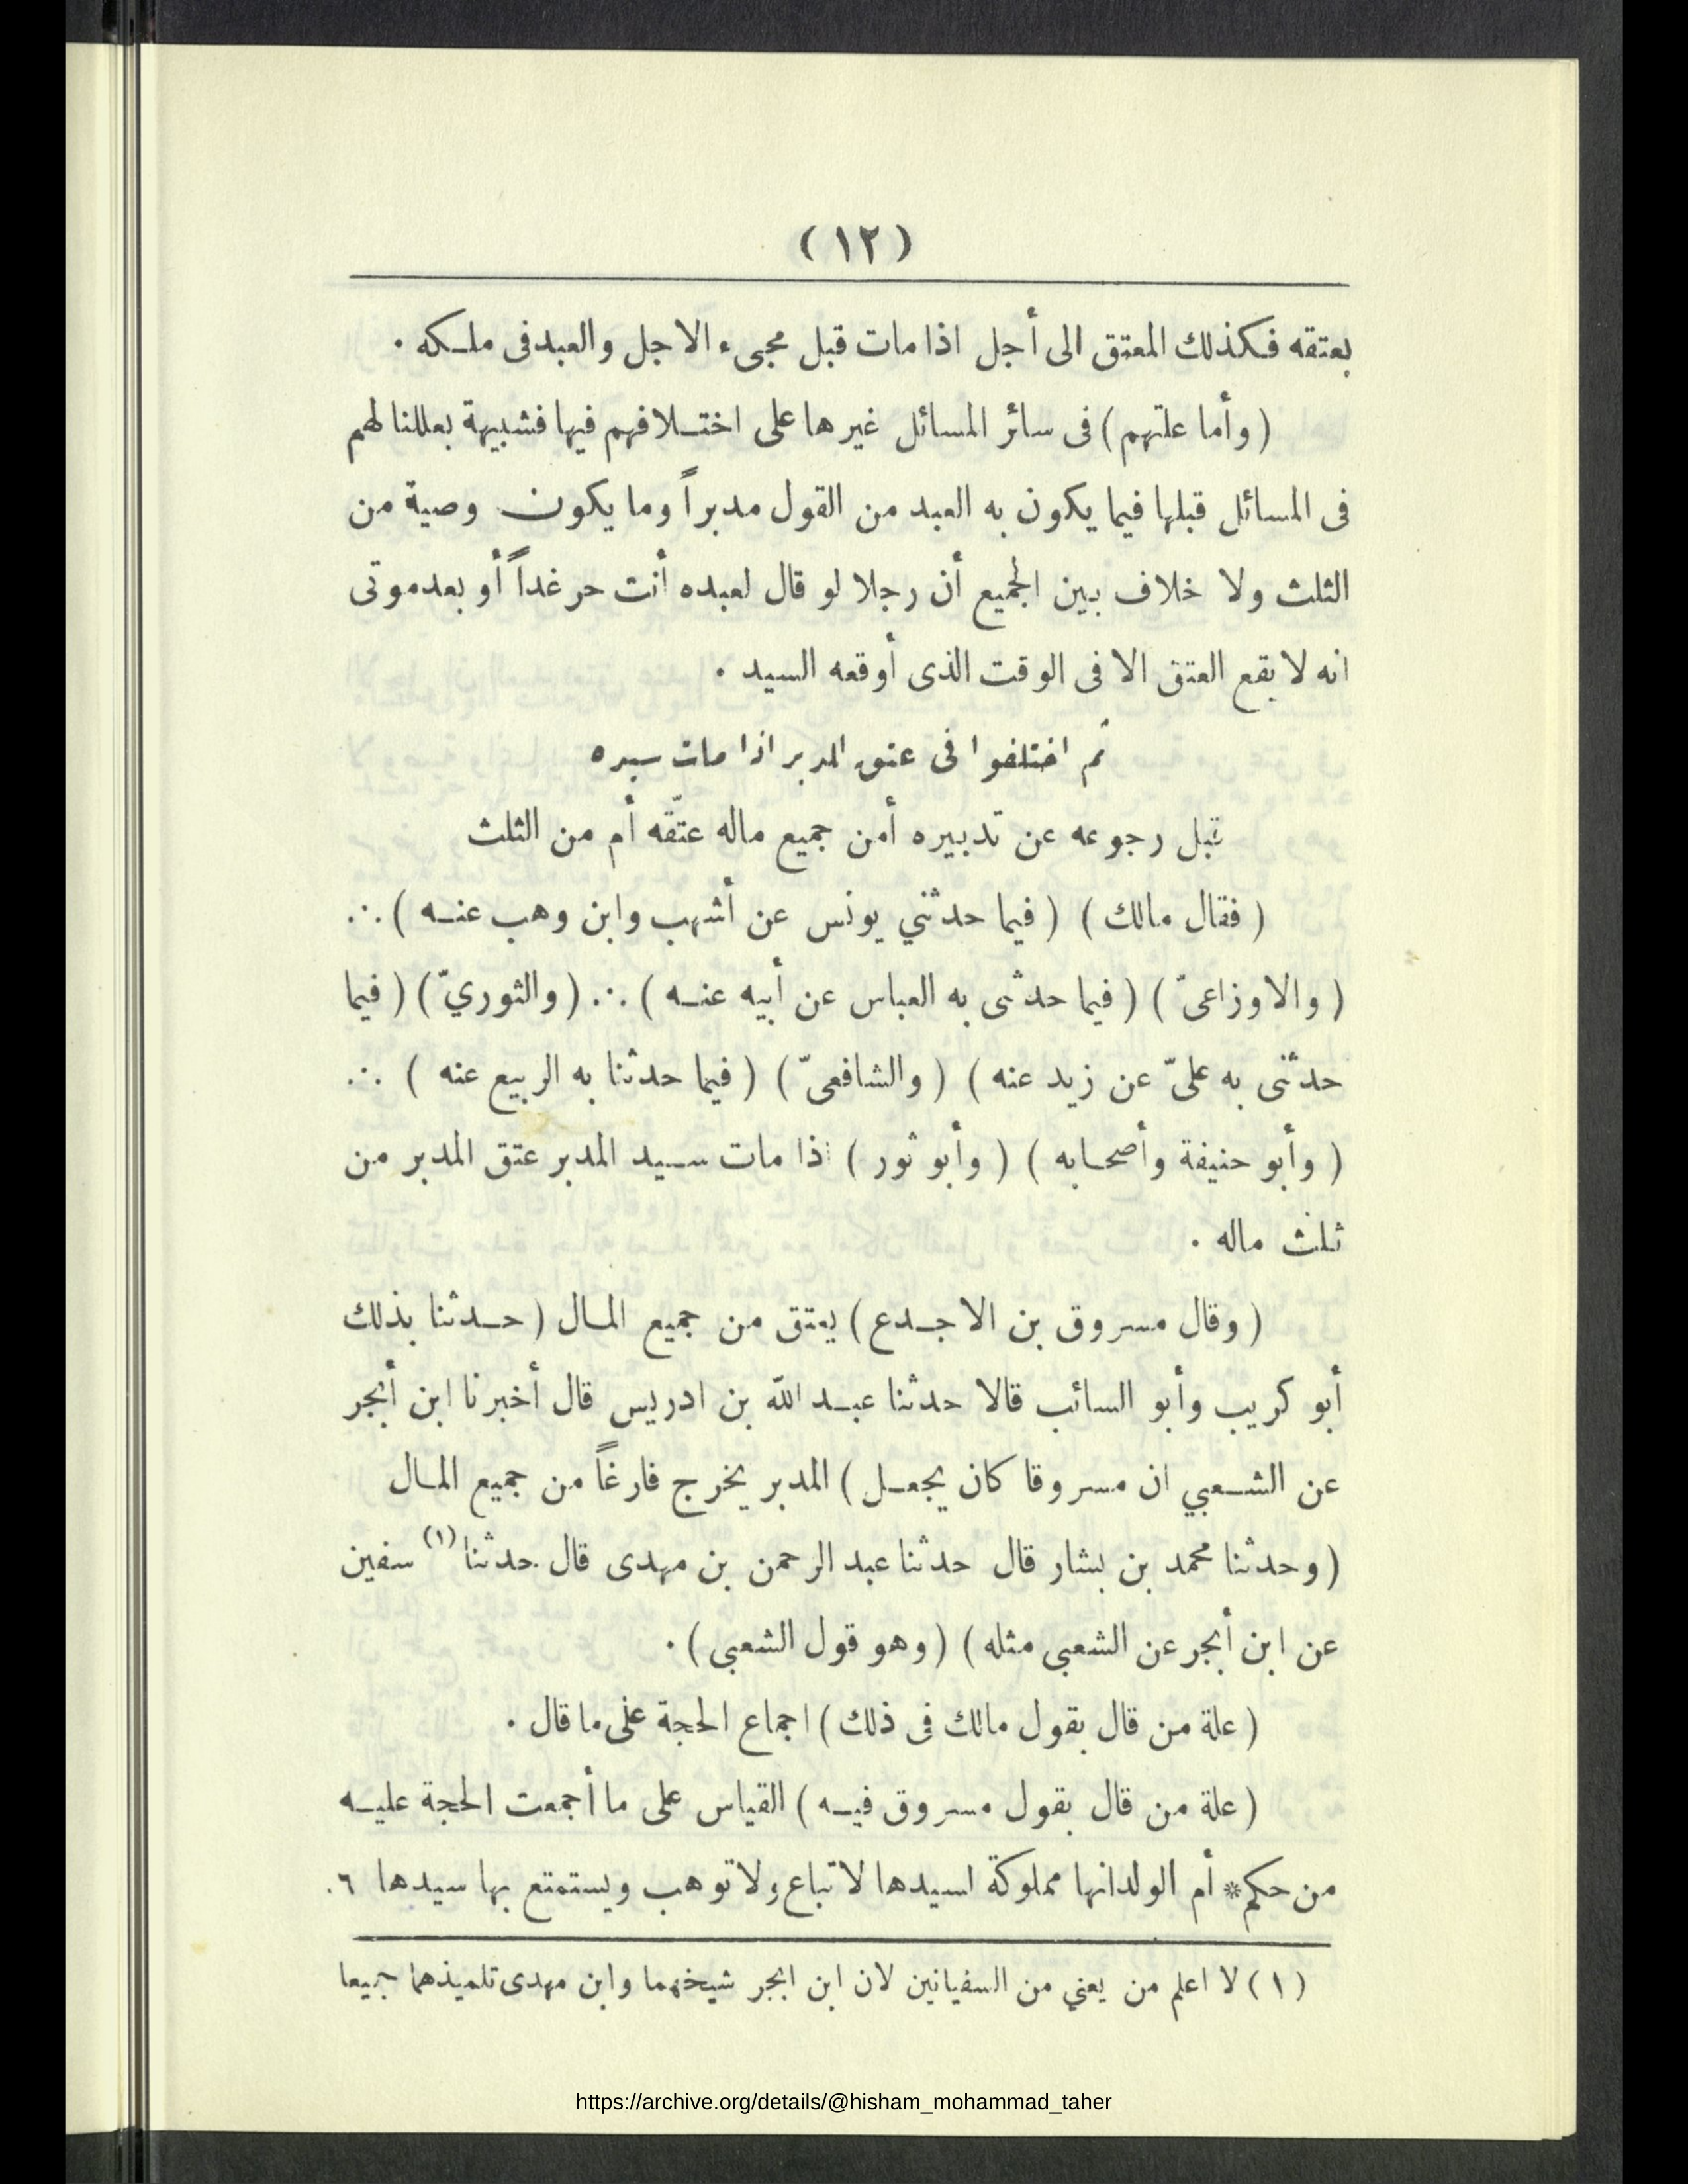 (١٢)
بعتقه فكذلك المعتق الى أجل اذا مات قبل مجىء الاجل والعبد فى ملكه .
(وأما علتهم) فى سائر المسائل غيرها على اختلافهم فيها فشبيهة بعللنا لهم
فى المسائل قبلها فيما يكون به العبد من القول مدبراً وما يكون وصية من
الثلث ولا خلاف بين الجميع أن رجلا لو قال لعبده أنت حر غداً أو بعد موتى
انه لا يقع العتق الا فى الوقت الذى أوقعه السيد .
ثم اختلفوا فى عتق المدبر اذا مات سيده
قبل رجوعه عن تدبيره أمن جميع ماله عتّقه أم من الثلث
( فقال مالك ) ( فيما حدثني يونس عن أشهب وابن وهب عنه ) ∴
( والاوزاعىّ ) ( فيما حدثنى به العباس عن أبيه عنه ) ∴ ( والثوريّ ) ( فيما
حدثنى به علىّ عن زيد عنه ) ( والشافعىّ ) ( فيما حدثنا به الربيع عنه ) ∴
( وأبو حنيفة وأصحابه ) ( وأبو ثور ) اذا مات سيد المدبر عتق المدبر من
ثلث ماله .
( وقال مسروق بن الاجدع ) يعتق من جميع المال ( حدثنا بذلك
أبو كريب وأبو السائب قالا حدثنا عبد الله بن ادريس قال أخبرنا ابن أبجر
عن الشعبي ان مسروقا كان يجعل ) المدبر يخرج فارغاً من جميع المال
( وحدثنا محمد بن بشار قال حدثنا عبد الرحمن بن مهدى قال حدثنا (١) سفين
عن ابن أبجر عن الشعبى مثله ) ( وهو قول الشعبى ) .
( علة من قال بقول مالك فى ذلك ) اجماع الحجة على ما قال .
( علة من قال بقول مسروق فيه ) القياس على ما أجمعت الحجة عليه
من حكم * أم الولد انها مملوكة لسيدها لا تباع ولا توهب ويستمتع بها سيدها ٦.
(١) لا اعلم من يعني من السفيانين لان ابن ابجر شيخهما وابن مهدى تلميذهما جميعا
https://archive.org/details/@hisham_mohammad_taher